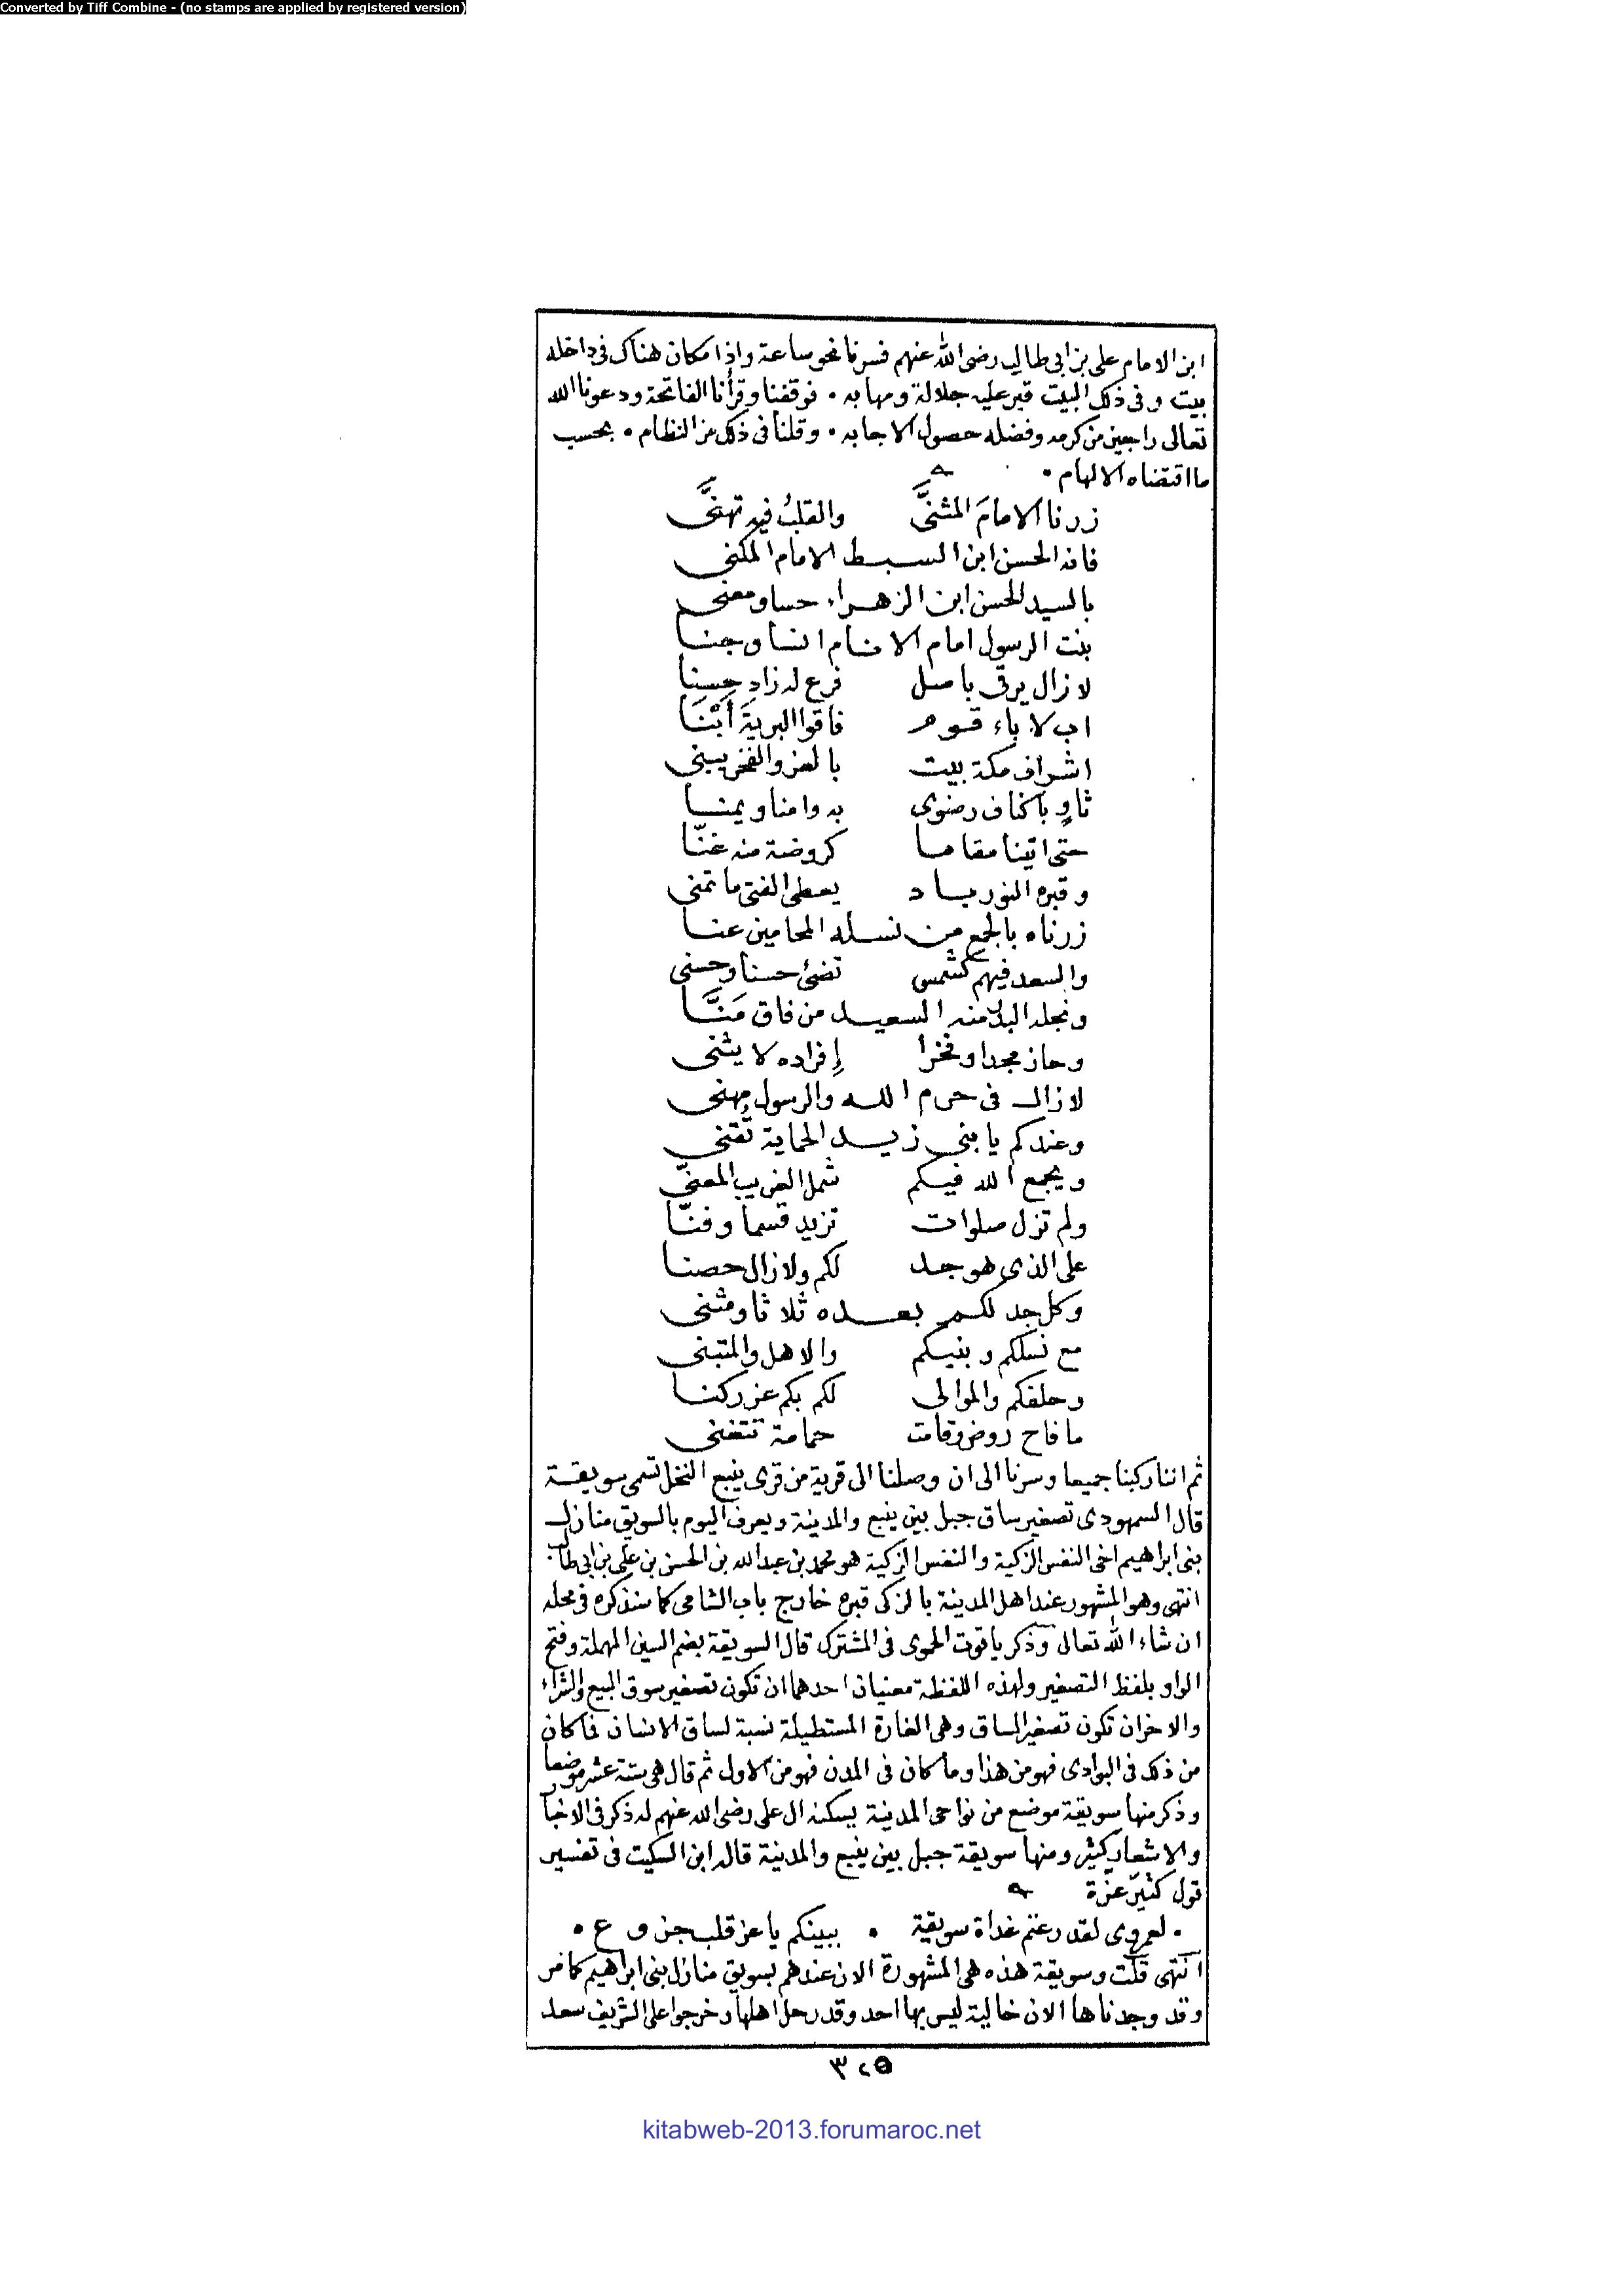 Converted by Tiff Combine - (no stamps are applied by registered version)
ابن الامام على بن ابى طالب رضى الله عنهم فسرنا نحو ساعة واذا مكان هناك فى داخله
بيت وفى ذلك البيت قبر عليه جلالة ومهابه . فوقفنا وقرأنا الفاتحة ودعونا الله
تعالى راجين من كرمه وفضله حصول الاجابه . وقلنا فى ذلك من النظام . بحسب
ما اقتضاه الالهام .
زرنا الامامَ المثنَّى والقلبُ فيه تهنَّى
فانه الحسن ابن السبط الامام المكنى
بالسيد الحسن ابن الزهراء حسا ومعنى
بنت الرسول امام الانام انسا وجنا
لازال يرقى باصل فرع له زاد حسنا
اب لاباء قوم فاقوا البريةَ أَبْنَا
اشراف مكة بيت بالعز والفخر يبنى
ثاوٍ باكناف رضوى به وامنا ويمنا
حتى اتينا مقاما كروضة منه غنّا
وقبره النور باد يعطى الفتى ما تمنى
زرناه بالجمع من نسله المحامين عنا
والسعد فيهم كشمس تضئ حسنا وحسنى
ونجله البدر منه السعيد من فاق مَنَّا
وحاز مجدا وفخرا إفراده لا يثنى
لازال فى حرم الله والرسول مهنى
وعندكم يا بنى زيد الحماية تقنى
ويجمع الله فيكم شمل الغريب المعنّى
ولم تزل صلوات تزيد قسما وفنّا
على الذى هو جد لكم ولا زال حصنا
وكل جد لكم بعده ثلاثا ومثنى
مع نسلكم وبنيكم والاهل والمتبنى
وحلفكم والموالى لكم بكم عز ركنا
ما فاح روض وقامت حمامة تتغنى
ثم اننا ركبنا جميعا وسرنا الى ان وصلنا الى قرية من قرى ينبع النخل تسمى سويقة
قال السمهودى تصغير ساق جبل بين ينبع والمدينة ويعرف اليوم بالسويق منازل
بنى ابراهيم اخى النفس الزكية والنفس الزكية هو محمد بن عبد الله بن الحسن بن على بن ابى طالب
انتهى وهو المشهور عند اهل المدينة بالزكى قبره خارج باب الشامى كما سنذكره فى محله
ان شاء الله تعالى وذكر ياقوت الحموى فى المشترك قال السويقة بضم السين المهملة وفتح
الواو بلفظ التصغير ولهذه اللفظة معنيان احدهما ان تكون تصغير سوق البيع والشراء
والاخر ان تكون تصغير الساق وهى الغارة المستطيلة نسبة لساق الانسان فما كان
من ذلك فى البوادى فهو من هذا وما كان فى المدن فهو من الاول ثم قال هى ستة عشر موضعا
وذكر منها سويقة موضع من نواحى المدينة يسكنه ال على رضى الله عنهم له ذكر فى الاخبار
والاشعار كثير ومنها سويقة جبل بين ينبع والمدينة قاله ابن السكيت فى تفسير
قول كثيّر عزة
. لعمرى لقد رعتم غداة سويقة . ببينكم يا عز قلب جزوع .
انتهى قلت وسويقة هذه هى المشهورة الان عندهم بسويق منازل بنى ابراهيم كما مر
وقد وجدناها الان خالية ليس بها احد وقد رحل اهلها وخرجوا على الشريف سعد
٣٢٥
kitabweb-2013.forumaroc.net